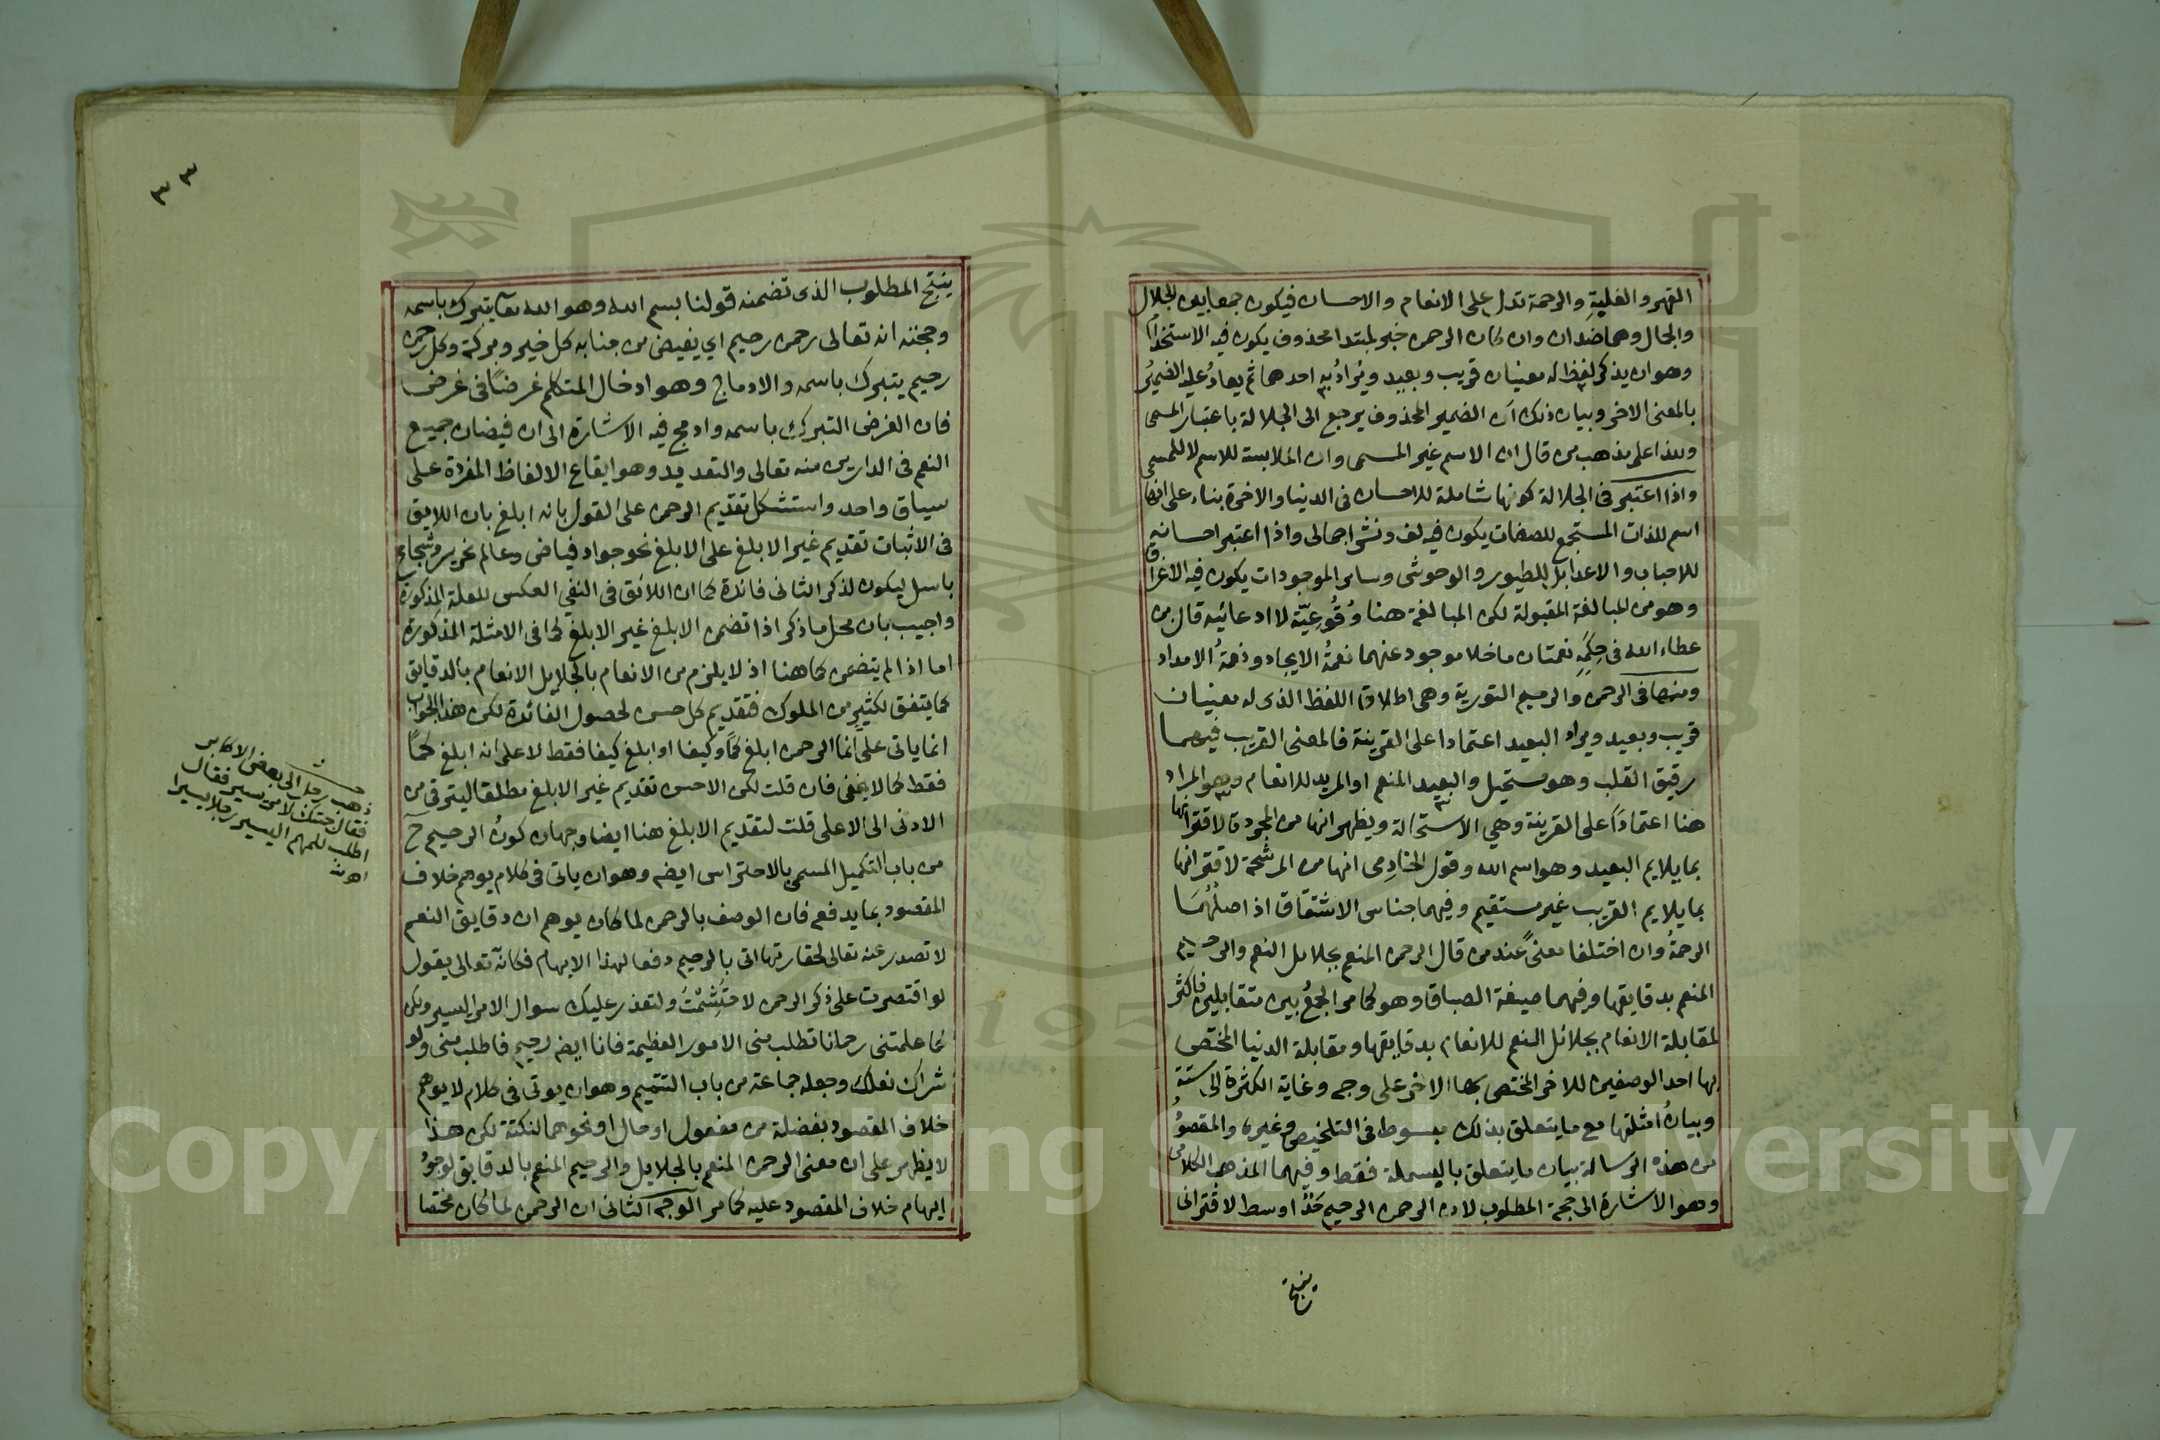 القهر والغلبة والرحمة تدل على الانعام والاحسان فيكون جمعا بين الجلال
والجمال وهما ضدان وان كان الرحمن خبر لمبتدا محذوف يكون فيه الاستخدام
وهو ان يذكر لفظ له معنيان قريب وبعيد ويُرادُ به احدهما ثم يعادُ عليه الضميرُ
بالمعنى الاخر وبيان ذلك ان الضمير المحذوف يرجع الى الجلالة باعتبار المسمى
وهذا على مذهب من قال ان الاسم غير المسمى وان الملابسة للاسم لا للمسمى
واذا اعتبر في الجلالة كونها شاملة للاحسان في الدنيا والاخرة بناء على انها
اسم للذات المستجمع للصفات يكون فيه لف ونشر اجمالى واذا اعتبر احسانه
للاحباب والاعدا بل للطيور والوحوش وسائر الموجودات يكون فيه الاغراق
وهو من المبالغة المقبولة لكن المبالغة هنا وُقُوعِيّة لا ادعائيه قال بن
عطاء الله في حِكَمِهِ نعمتان ما خلا موجود عنهما نعمةُ الايجاد ونعمةُ الامداد
ومنها في الرحمن والرحيم التورية وهي اطلاق اللفظ الذى له معنيان
قريب وبعيد ويراد البعيد اعتمادا على القرينة فالمعنى القريب فيهما
رقيق القلب وهو مستحيل والبعيد المنعم او المريد للانعام وهو المراد
هنا اعتمادًا على القرينة وهي الاستحالة ويظهر انها من المجردة لاقترانها
بما يلايم البعيد وهو اسم الله وقول الخادمى انها من المرشحة لاقترانها
بما يلايم القريب غير مستقيم وفيهما جناس الاشتقاق اذ اصلُهُمَا
الرحمةُ وان اختلفا معنىً عند من قال الرحمن المنعم بجلائل النعم والرحيم
المنعم بدقايقها وفيهما صيغة الطباق وهو كما مر الجمعُ بين متقابلين فاكثر
لمقابلة الانعام بجلائل النعم للانعام بدقايقها ومقابلة الدنيا المختص
بها احد الوصفين للاخر المختص بها الاخر على وجه وغاية الكثرة الى ستة
وبيانُ امثلتها مع ما يتعلق بذلك مبسوط في التلخيص وغيره والمقصودُ
من هذه الرسالة بيان ما يتعلق بالبسملة فقط وفيهما المذهب الكلامى
وهو الاشارة الى حجة المطلوب لان الرحمن الرحيم حَدٌّ اوسط لاقترانى
ينتج
٣٣
ينتج المطلوب الذى تضمنه قولنا بسم الله وهو الله تعا يتبرك باسمه
وحجته انه تعالى رحمن رحيم اي يفيض من جنابه كل خير وبركة وكل رحمن
رحيم يتبرك باسمه والادماج وهو ادخال المتكلم غرضًا في غرض
فان الغرض التبرك باسمه وادمج فيه الاشارة الى ان فيضان جميع
النعم في الدارين منه تعالى والتعديد وهو ايقاع الالفاظ المفردة على
سياق واحد واستشكل تقديم الرحمن على القول بانه ابلغ بان اللايق
فى الاثبات تقديم غير الابلغ على الابلغ نحو جواد فياض وعالم نحرير وشجاع
باسل ليكون لذكر الثانى فائدة كما ان اللائق فى النفي العكس للعلة المذكورة
واجيب بان محل ما ذكر اذا تضمن الابلغ غير الابلغ كما فى الامثلة المذكورة
اما اذا لم يتضمن كما هنا اذ لا يلزم من الانعام بالجلايل الانعام بالدقايق
كما يتفق لكثير من الملوك فتقديم كل حسن لحصول الفائدة لكن هذا الجواب
انما ياتى على انما الرحمن ابلغ كمًّا وكيفا او ابلغ كيفا فقط لا على انه ابلغ كمًّا
فقط كما لا يخفى فان قلت لكن الاحسن تقديم غير الابلغ مطلقا ليترقى من
الادنى الى الاعلى قلت لتقديم الابلغ هنا ايضا وجهان كونُ الرحيم ح
من باب التكميل المسمى بالاحتراس ايضه وهو ان ياتى فى كلام يوهم خلاف
المقصود بما يدفعه فان الوصف بالرحمن لما كان يوهم ان دقايق النعم
لا تصدر عنه تعالى لحقارتها اتى بالرحيم دفعا لهذا الايهام فكانه تعالى يقول
لو اقتصرت على ذكر الرحمن لاحتَشِمْتَ ولتعذر عليك سوال الامر اليسير ولكن
كما علمتنى رحمانا تطلب منى الامور العظيمة فانا ايضه رحيم فاطلب منى ولو
شراك نعلك وجعله جماعة من باب التتميم وهو ان يوتى فى كلام لا يوهم
خلاف المقصود بفضلة من مفعول او حال او نحوهما لنكتة لكن هذا
لا يظهر على ان معنى الرحمن المنعم بالجلايل والرحيم المنعم بالدقايق لوجودُ
ايهام خلاف المقصود عليه كما مر الوجه الثانى ان الرحمن لما كان مختصا
ذهب رجل الى بعض الاكابر
فقال جئتك لامر يسير فقال
اطلب للمهم اليسير رجلا يسيرا
Copyright © King Saud University
195